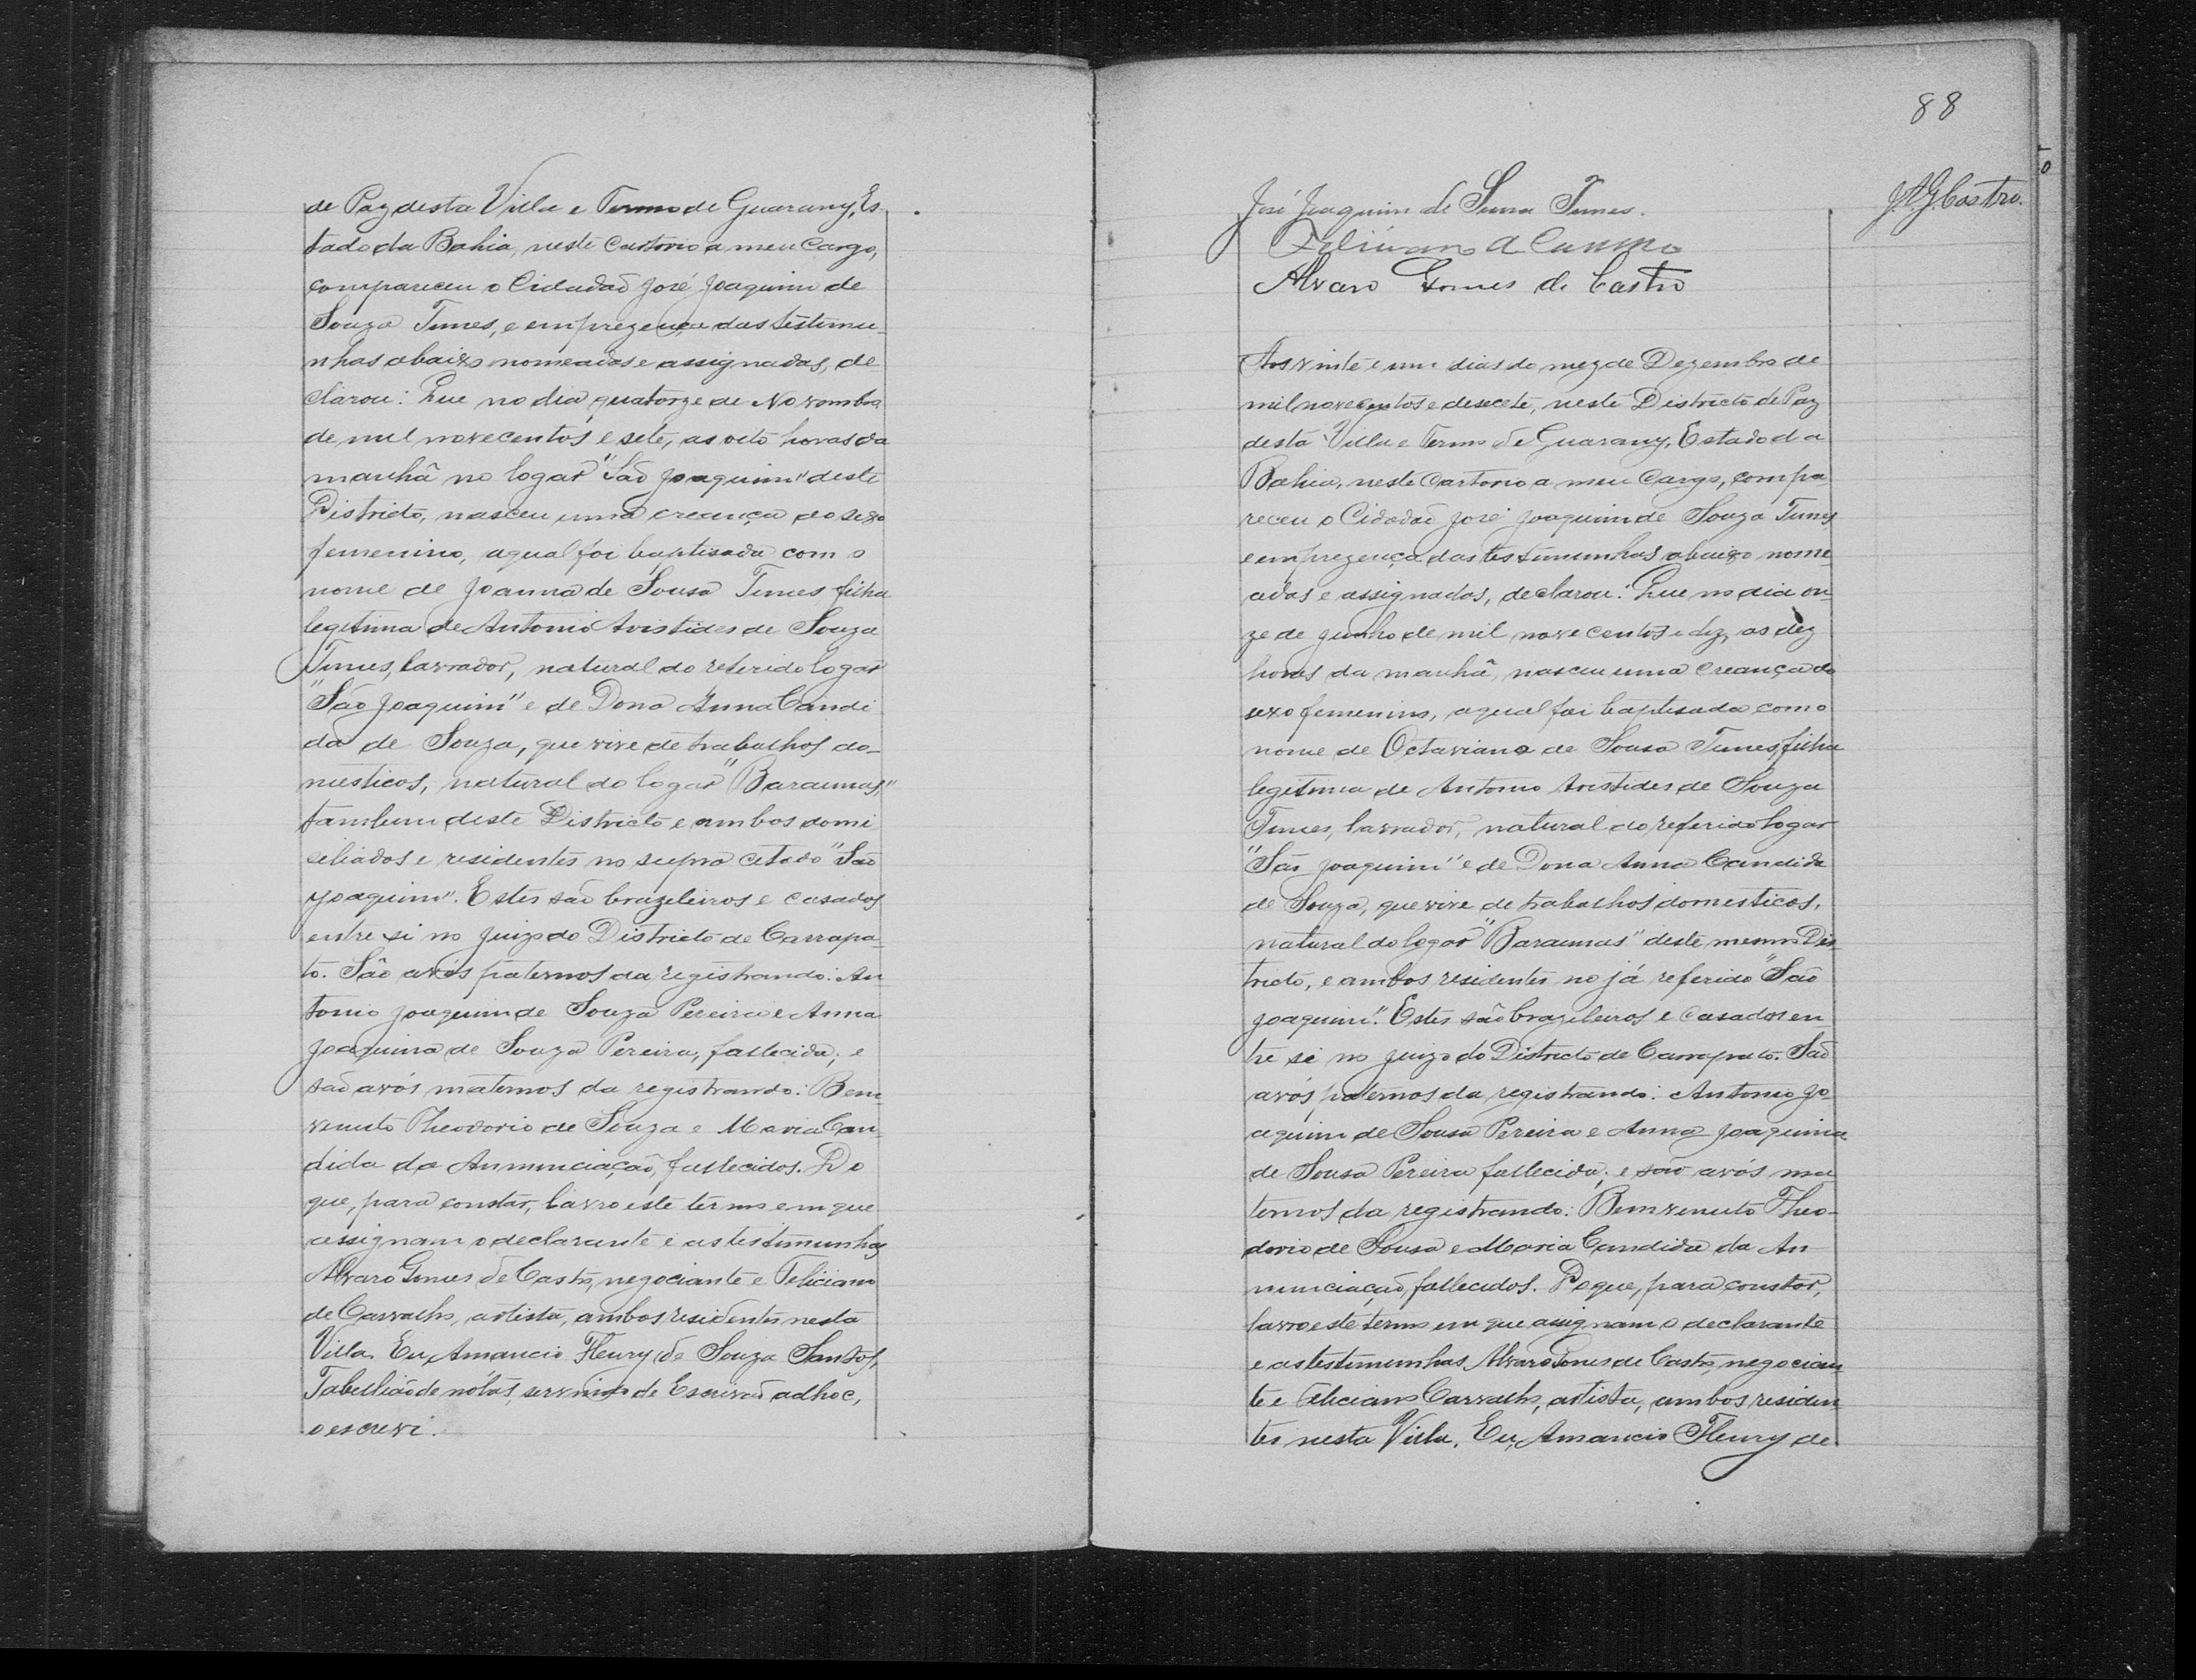 de Paz desta Villa e Termo de Guarany, Es
tado da Bahia, neste Cartorio a meu Cargo,
compareceu o Cidadaõ José Joaquim de
Souza Tunes, e em prezença das testemu-
nhas abaixo nomeadas e assignadas, de
clarou: Que no dia quatorze de Novembro
de mil novecentos e sete, as oito horas da
manhã no logar "Saõ Joaquim" deste
Districto, nasceu uma creança do sexo
femenino, a qual foi baptisada com o
nome de Joanna de Sousa Tunes filha
legitima de Antonio Aristides de Souza
Tunes, lavrador, natural do referido logar
"São Joaquim" e de Dona Anna Candi
da de Souza, que vive de trabalhos do-
mesticos, natural do logar "Baraunas,"
tambem deste Districto e ambos domi
ciliados e residentes no supra citado "Saõ
Joaquim". Estes saõ brazileiros e casados
entre si no Juizo do Districto de Carrapa-
to. São avós paternos da registrando: An
tonio Joaquim de Souza Pereira e Anna
Joaquina de Souza Pereira, fallecida; e
saõ avós maternos da registrando: Bem
venuto Theodorio de Souza e Maria Can-
dida da Annunciação, fallecidos. Do
que, para constar, lavro este termo em que
assignam o declarante e as testimunhas
Alvaro Gomes de Castro, negociante e Feliciano
de Carvalho, artista, ambos residentes nesta
Villa. Eu, Amancio Fleury de Souza Santos,
Tabelliaõ de nótas, servindo de Escrivaõ adhoc,
o escrevi.
88
J. A. G. Castro.
José Joaquim de Sousa Tunes.
Alvaro Gomes de Castro
Aos vinte e um dias do mez de Dezembro de
mil novecentos e desecete, neste Districto de Paz
desta Villa e Termo de Guarany, Estado da
Bahia, neste Cartorio a meu Cargo, compa-
receu o Cidadaõ José Joaquim de Souza Tunes
e em prezença das testimunhas abaixo nome
adas e assignadas, declarou: Que no dia on-
ze de junho de mil novecentos e dez, as dez
horas da manhã, nasceu uma creança do
sexo femenino, a qual foi baptisada com o
nome de Octaviana de Sousa Tunes, filha
legitima de Antonio Aristides de Souza
Tunes, lavrador, natural do referido logar
"Saõ Joaquim" e de Dona Anna Candida
de Souza, que vive de trabalhos domesticos,
natural do logar "Baraunas" deste mesmo Dis
tricto, e ambos residentes no já referido "Saõ
Joaquim". Estes são brazileiros e casados en
tre si no Juizo do Districto de Carrapato. Saõ
avós paternos da registrando: Antonio Jo-
aquim de Sousa Pereira e Anna Joaquina
de Sousa Pereira fallecida; e saõ avós ma
ternos da registrando: Bemvenuto Theo-
dorio de Sousa e Maria Candida da An
nunciação, fallecidos. Do que, para constar,
lavro este termo em que assignam o declarante
e as testimunhas Alvaro Gomes de Castro, negocian
te e Feliciano Carvalho, artista, ambos residen-
tes nesta Villa. Eu, Amancio Fleury de